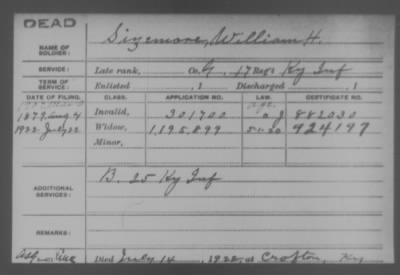 DEAD
NAME OF SOLDIER: Sizemore, William H.
SERVICE: Late rank, Co. G, 17 Reg't Ky Inf
TERM OF SERVICE: Enlisted , 1 Discharged , 1
DATE OF FILING. CLASS. APPLICATION NO. LAW. CERTIFICATE NO.
1879 Aug 4 Invalid, 301700 882030
1922 July 22 Widow, 1,195,899 924197
Minor,
ADDITIONAL SERVICES: B. 25 Ky Inf
REMARKS:
Died July 14, 1922, at Crofton, Ky